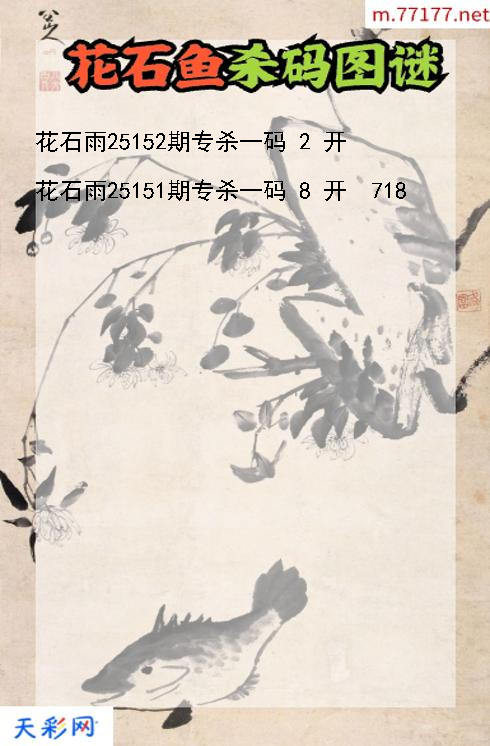 m.77177.net
八大
花石鱼杀码图谜
花石雨25152期专杀一码 2 开
花石雨25151期专杀一码 8 开 718
天彩网